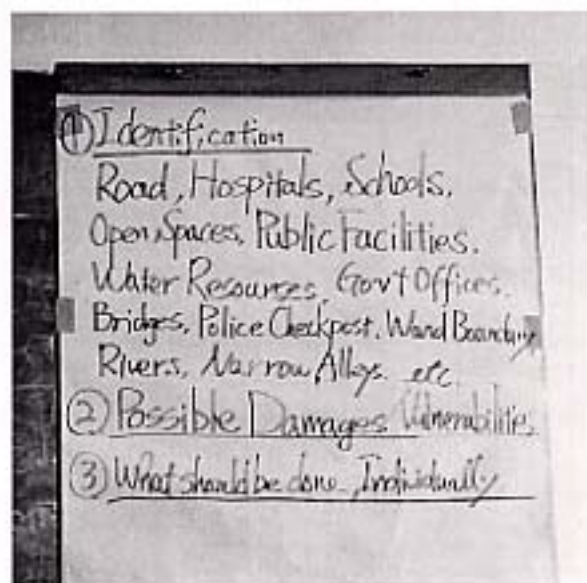 ① Identification
Road, Hospitals, Schools,
Open Spaces, Public Facilities,
Water Resourses, Gov't Offices,
Bridges, Police Checkpost, Ward Boundary
Rivers, Narrow Alleys etc
② Possible Damages Vulnerabilities
③ What should be done, Individually